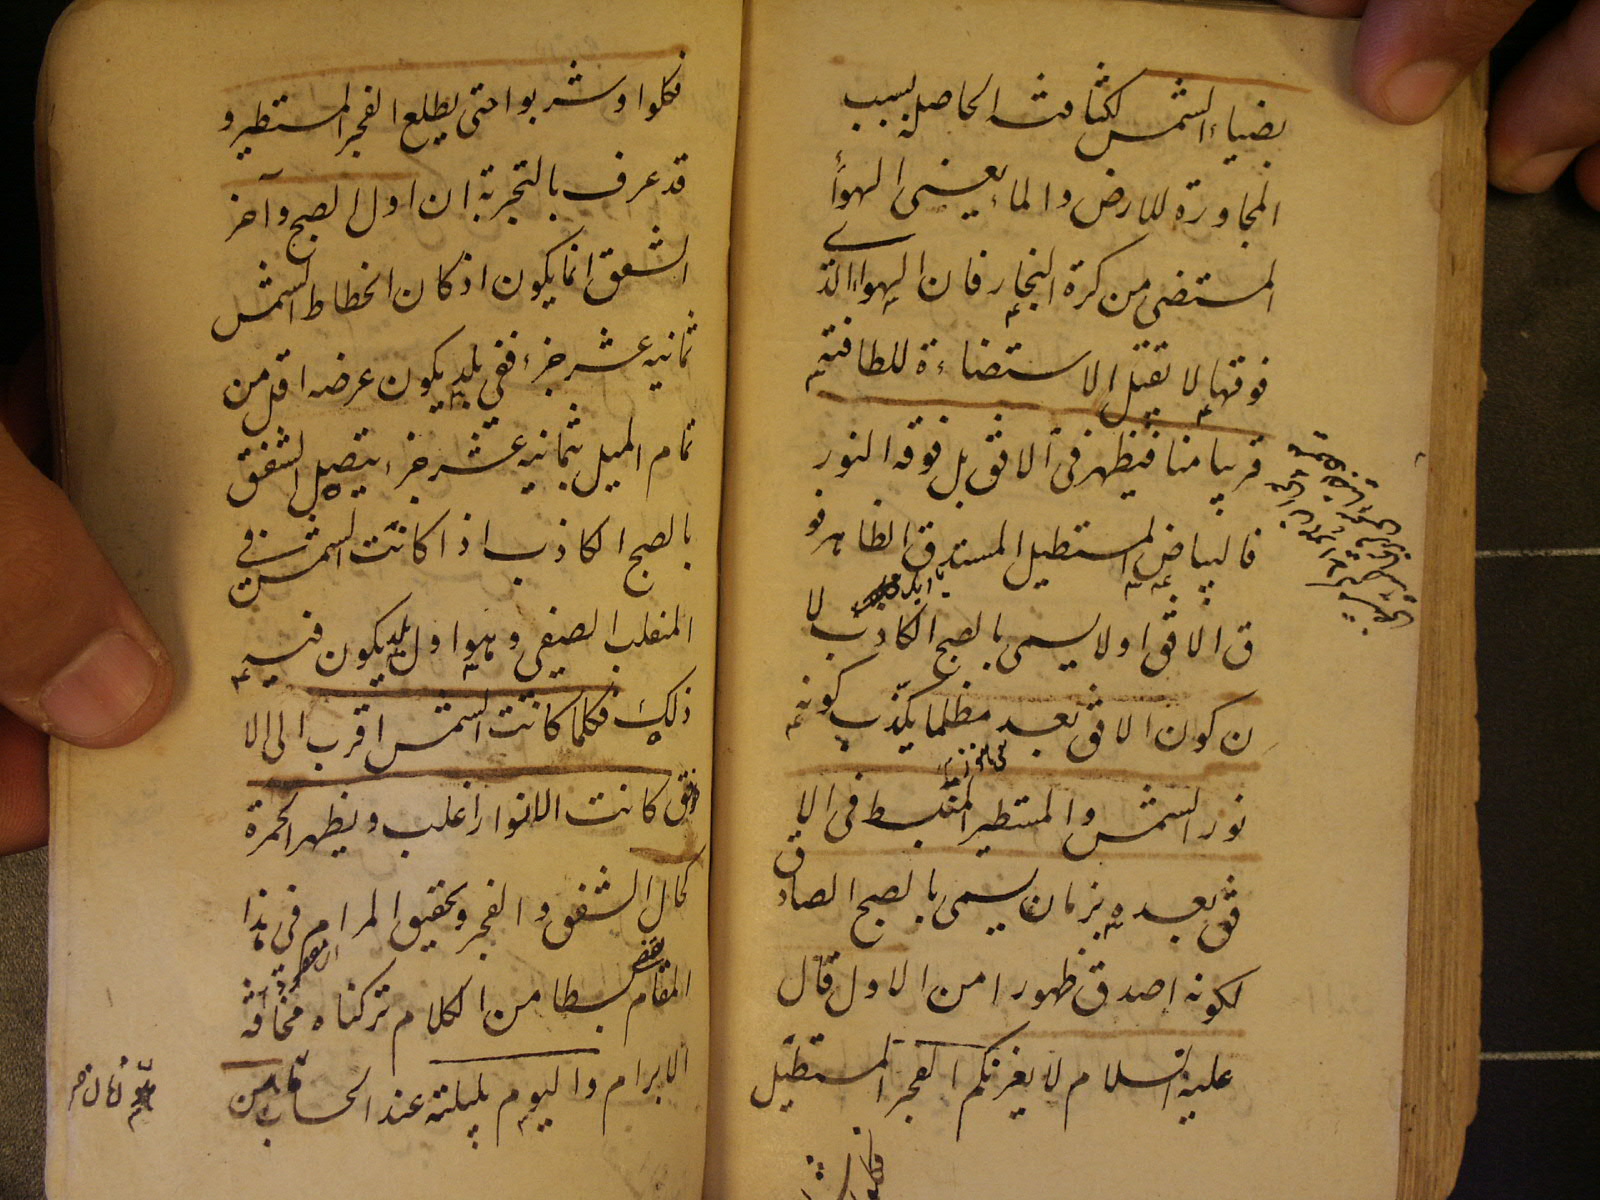 بضياء الشمس لكثافته الحاصلة بسبب
المجاورة للارض والماء يعنى الهواء
المستضى من كرة البخار فان الهواء الذى
فوقها لا يقبل الاستضاءة للطافته
قريبا منا فيظهر فى الافق بل فوقه النور
فالبياض المستطيل المستدق الظاهر فو
ق الافق اولا يسمى بالصبح الكاذب لا
ن كون الافق بعد مظلما يكذب كونه
نور الشمس والمستطير المنبسط فى الا
فق بعده بزمان يسمى بالصبح الصادق
لكونه اصدق ظهورا من الاول قال
عليه السلام لا يغرنكم الفجر المستطيل
فكلوا
فكلوا وشربوا حتى يطلع الفجر المستطير و
قد عرف بالتجربة ان اول الصبح وآخر
الشفق انما يكون اذ كان انحطاط الشمس
ثمانيه عشر جزء ففى بلد يكون عرضه اقل من
تمام الميل بثمانيه عشر جزء يتصل الشفق
بالصبح الكاذب اذا كانت الشمس فى
المنقلب الصيفى وهو اول بلد يكون فيه
ذلك فكلما كانت الشمس اقرب الى الا
فق كانت الانوار اغلب ويظهر الحمرة
كحال الشفق والفجر وتحقيق المرام فى هذا
المقام بسطا من الكلام تركناه مخافة
الابرام واليوم بليلته عند الحساب من